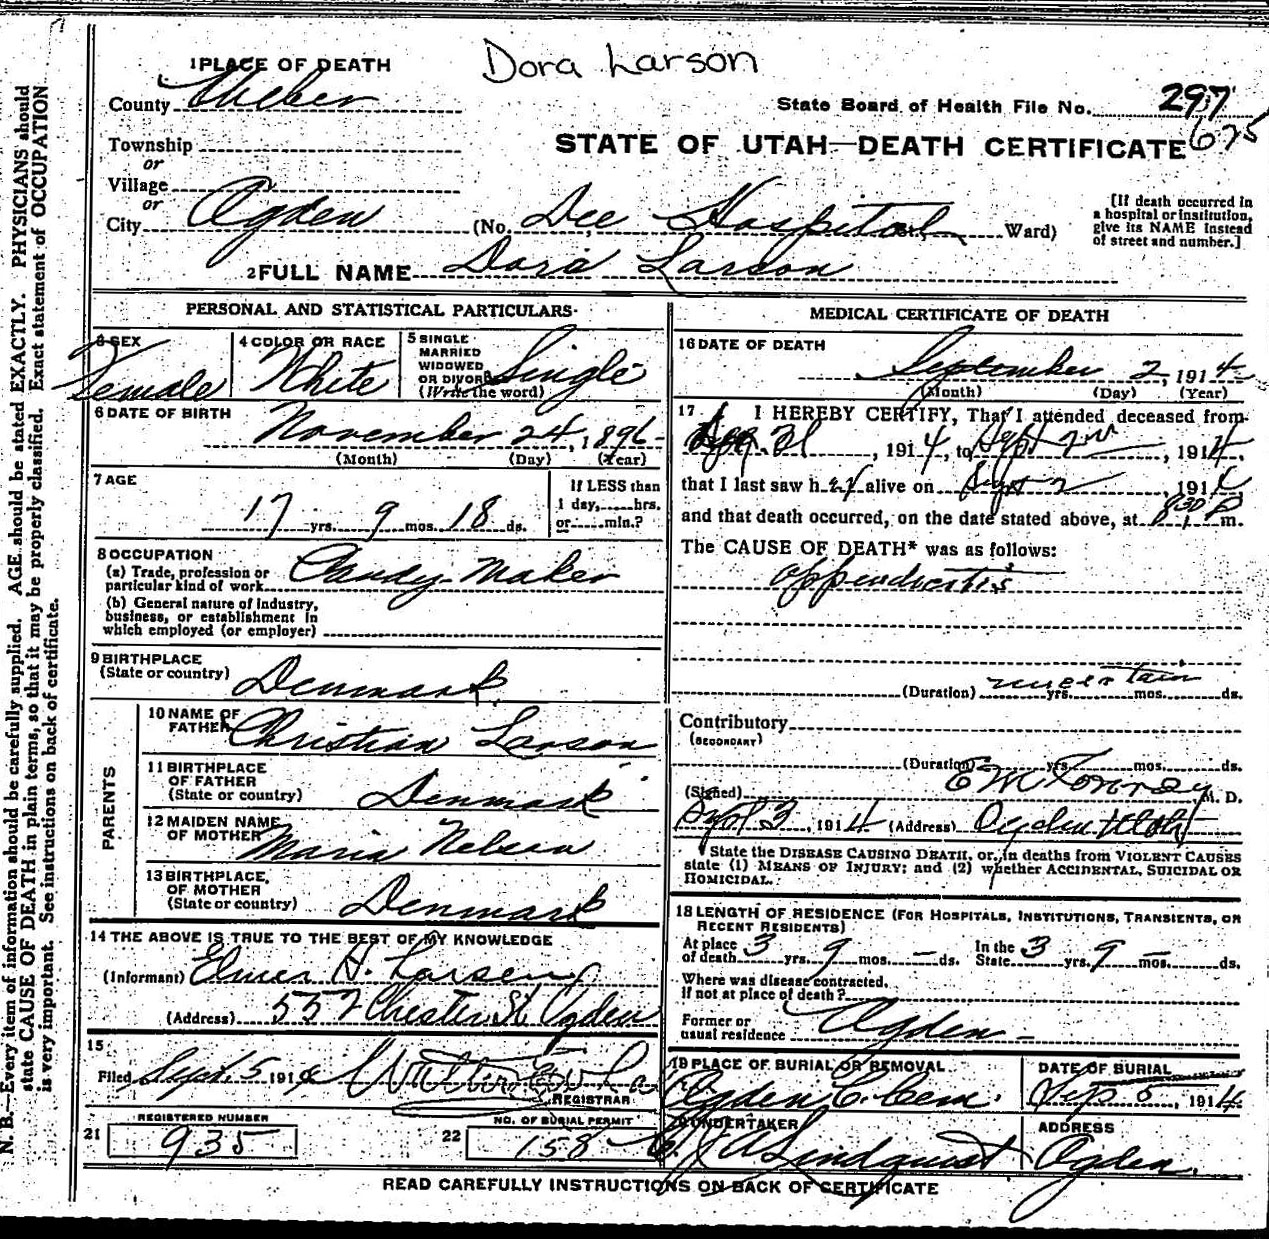 Dora Larson
1 PLACE OF DEATH
County Weber
State Board of Health File No. 297
675
Township
or
Village
or
City Ogden (No. Dee Hospital Ward)
STATE OF UTAH—DEATH CERTIFICATE
[If death occurred in
a hospital or institution,
give its NAME instead
of street and number.]
2 FULL NAME Dora Larson
PERSONAL AND STATISTICAL PARTICULARS
3 SEX
Female
4 COLOR OR RACE
White
5 SINGLE
MARRIED
WIDOWED
OR DIVORCED
(Write the word)
Single
6 DATE OF BIRTH
November 24, 1896
(Month) (Day) (Year)
7 AGE
17 yrs. 9 mos. 18 ds.
If LESS than
1 day, hrs.
or min.?
8 OCCUPATION
(a) Trade, profession or
particular kind of work Candy Maker
(b) General nature of industry,
business, or establishment in
which employed (or employer)
9 BIRTHPLACE
(State or country) Denmark
PARENTS
10 NAME OF
FATHER Christian Larson
11 BIRTHPLACE
OF FATHER
(State or country) Denmark
12 MAIDEN NAME
OF MOTHER Maria Nelsen
13 BIRTHPLACE
OF MOTHER
(State or country) Denmark
14 THE ABOVE IS TRUE TO THE BEST OF MY KNOWLEDGE
(Informant) Elmer H. Larsen
(Address) 557 Chester St. Ogden
15
Filed Sept. 5 1914
REGISTRAR
REGISTERED NUMBER
21 935
NO. OF BURIAL PERMIT
22 158
MEDICAL CERTIFICATE OF DEATH
16 DATE OF DEATH
September 2, 1914
(Month) (Day) (Year)
17 I HEREBY CERTIFY, That I attended deceased from
31, 1914, to Sept 2nd, 1914,
that I last saw her alive on Sept 2, 1914
and that death occurred, on the date stated above, at 830 P m.
The CAUSE OF DEATH* was as follows:
appendicitis
(Duration) uncertain yrs. mos. ds.
Contributory
(SECONDARY)
(Duration) yrs. mos. ds.
(Signed) E M Conroy M. D.
Sept 3, 1914 (Address) Ogden Utah
State the DISEASE CAUSING DEATH, or, in deaths from VIOLENT CAUSES
state (1) MEANS OF INJURY; and (2) whether ACCIDENTAL, SUICIDAL OR
HOMICIDAL.
18 LENGTH OF RESIDENCE (FOR HOSPITALS, INSTITUTIONS, TRANSIENTS, OR
RECENT RESIDENTS)
At place
of death 3 yrs. 9 mos. – ds. In the
State 3 yrs. 9 mos. – ds.
Where was disease contracted,
if not at place of death?
Former or
usual residence Ogden
19 PLACE OF BURIAL OR REMOVAL
Ogden C. Cem.
DATE OF BURIAL
Sep 5, 1914
20 UNDERTAKER
Lindquist
ADDRESS
Ogden.
READ CAREFULLY INSTRUCTIONS ON BACK OF CERTIFICATE
N. B.—Every item of information should be carefully supplied. AGE should be stated EXACTLY. PHYSICIANS should
state CAUSE OF DEATH in plain terms, so that it may be properly classified. Exact statement of OCCUPATION
is very important. See instructions on back of certificate.